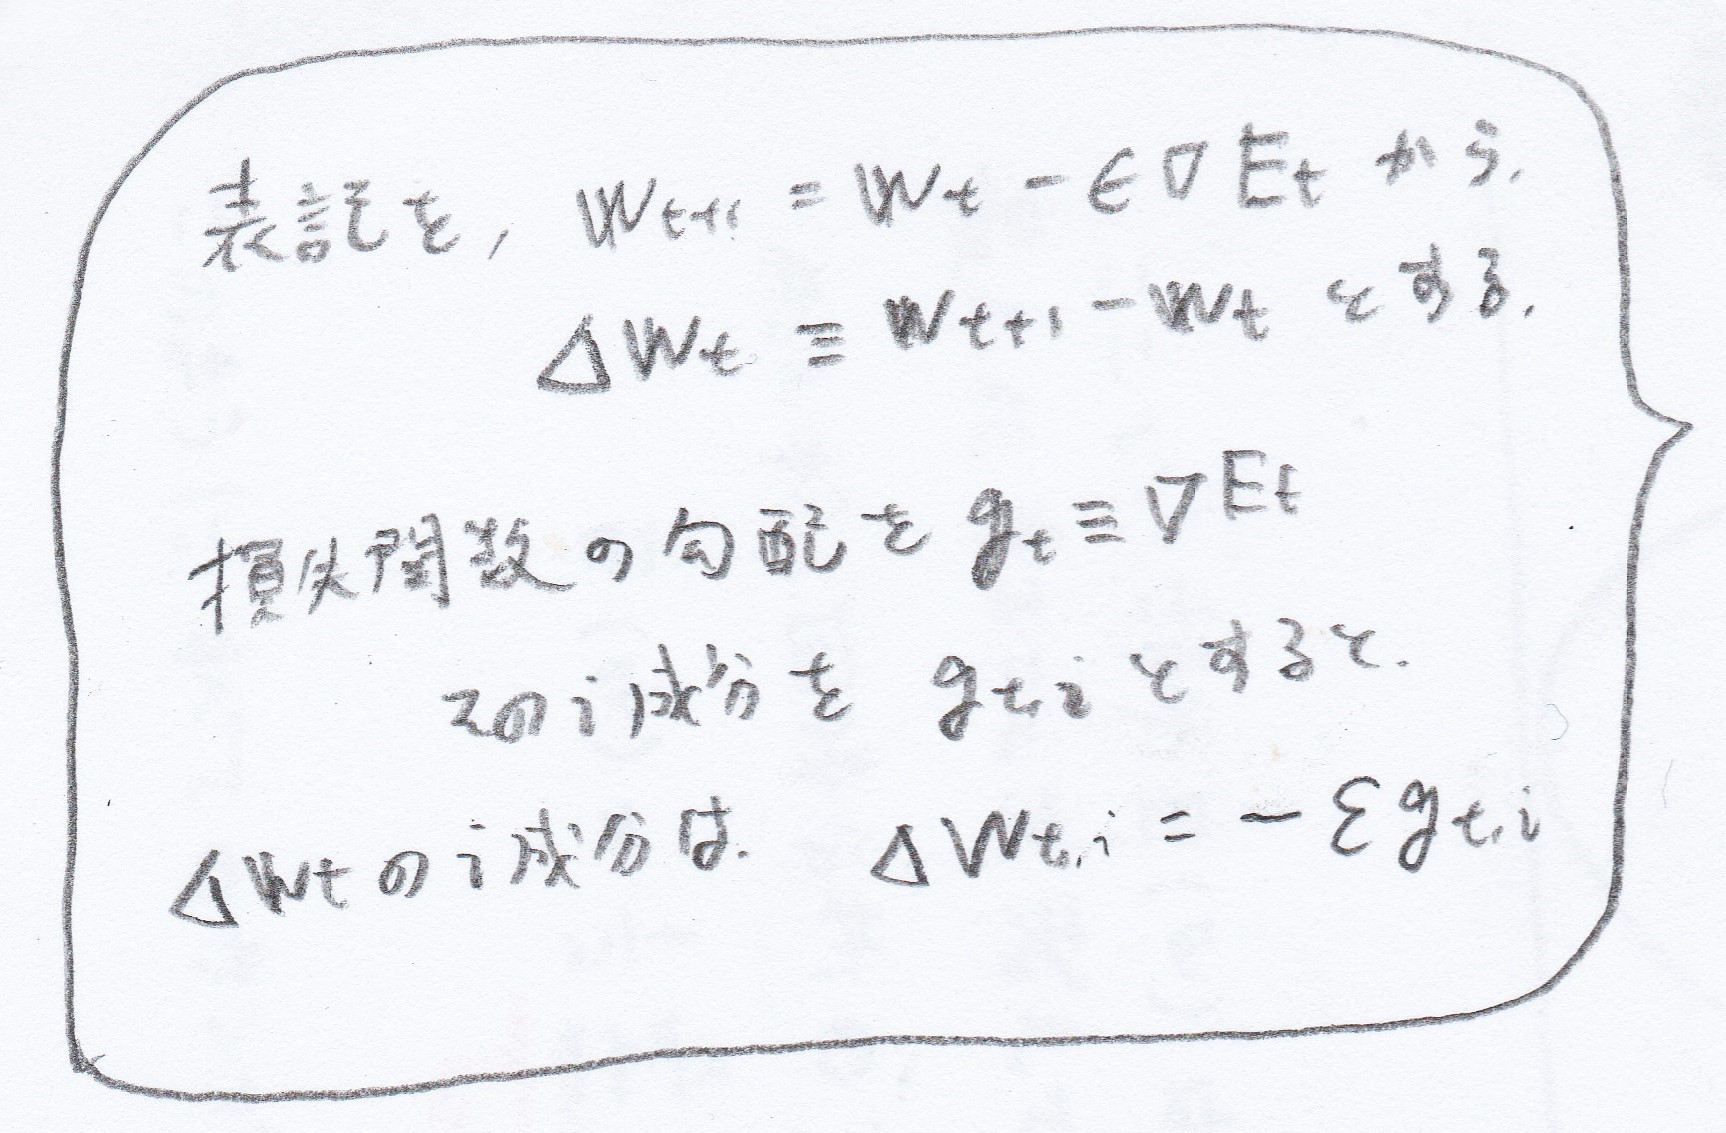 表記を, w_{t+1} = w_t - ϵ∇E_t から,
Δw_t ≡ w_{t+1} - w_t とする.
損失関数の勾配を g_t ≡ ∇E_t
このi成分を g_{t,i} とすると.
Δw_t の i成分は. Δw_{t,i} = - εg_{t,i}